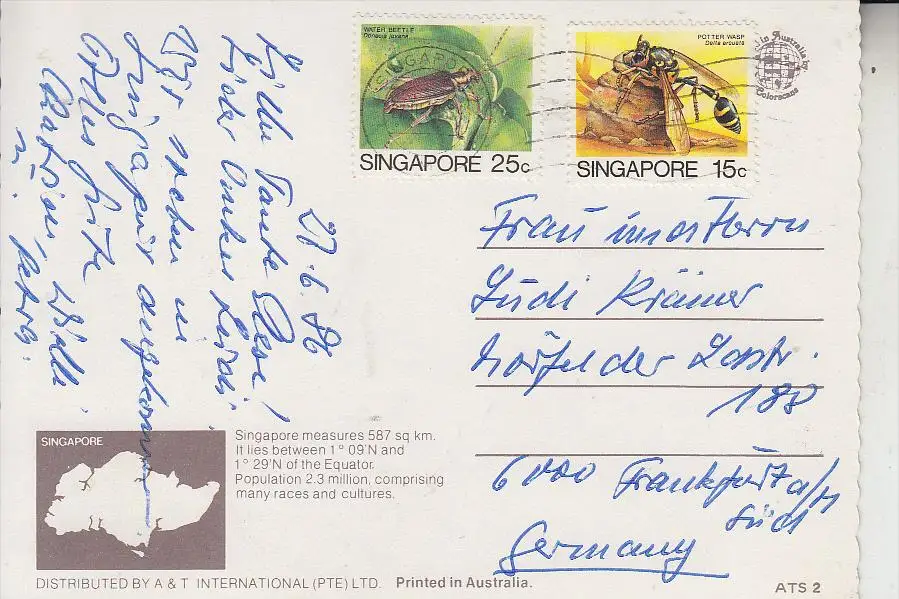 WATER BEETLE
Donacia javana
SINGAPORE
SINGAPORE 25c
POTTER WASP
Delta arcuata
SINGAPORE 15c
in Australia by
Colorscans
27.6.86
Liebe Tante Liesel
Lieber Onkel Ludi
Wir sind in
Singapur angekommen
Alles Gute
Frau und Herrn
Lüdi Krämer
Mörfelder Ldstr.
188
6000 Frankfurt a/M
Süd
Germany
SINGAPORE
Singapore measures 587 sq km.
It lies between 1° 09'N and
1° 29'N of the Equator.
Population 2.3 million, comprising
many races and cultures.
DISTRIBUTED BY A & T INTERNATIONAL (PTE) LTD. Printed in Australia.
ATS 2